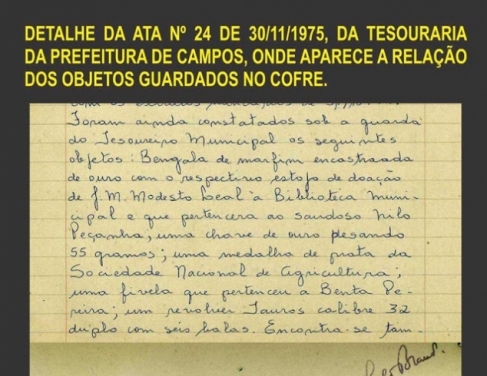 DETALHE DA ATA Nº 24 DE 30/11/1975, DA TESOURARIA
DA PREFEITURA DE CAMPOS, ONDE APARECE A RELAÇÃO
DOS OBJETOS GUARDADOS NO COFRE.
Foram ainda constatados sob a guarda
do Tesoureiro Municipal os seguintes
objetos: Bengala de marfim encastoada
de ouro com o respectivo estojo de doação
de J. M. Modesto Leal à Biblioteca Muni-
cipal e que pertencera ao saudoso Nilo
Peçanha; uma chave de ouro pesando
55 gramos; uma medalha de prata da
Sociedade Nacional de Agricultura;
uma fivela que pertenceu a Benta Pe-
reira; um revolver Tauros calibre 32
duplo com seis balas. Encontra-se tam-